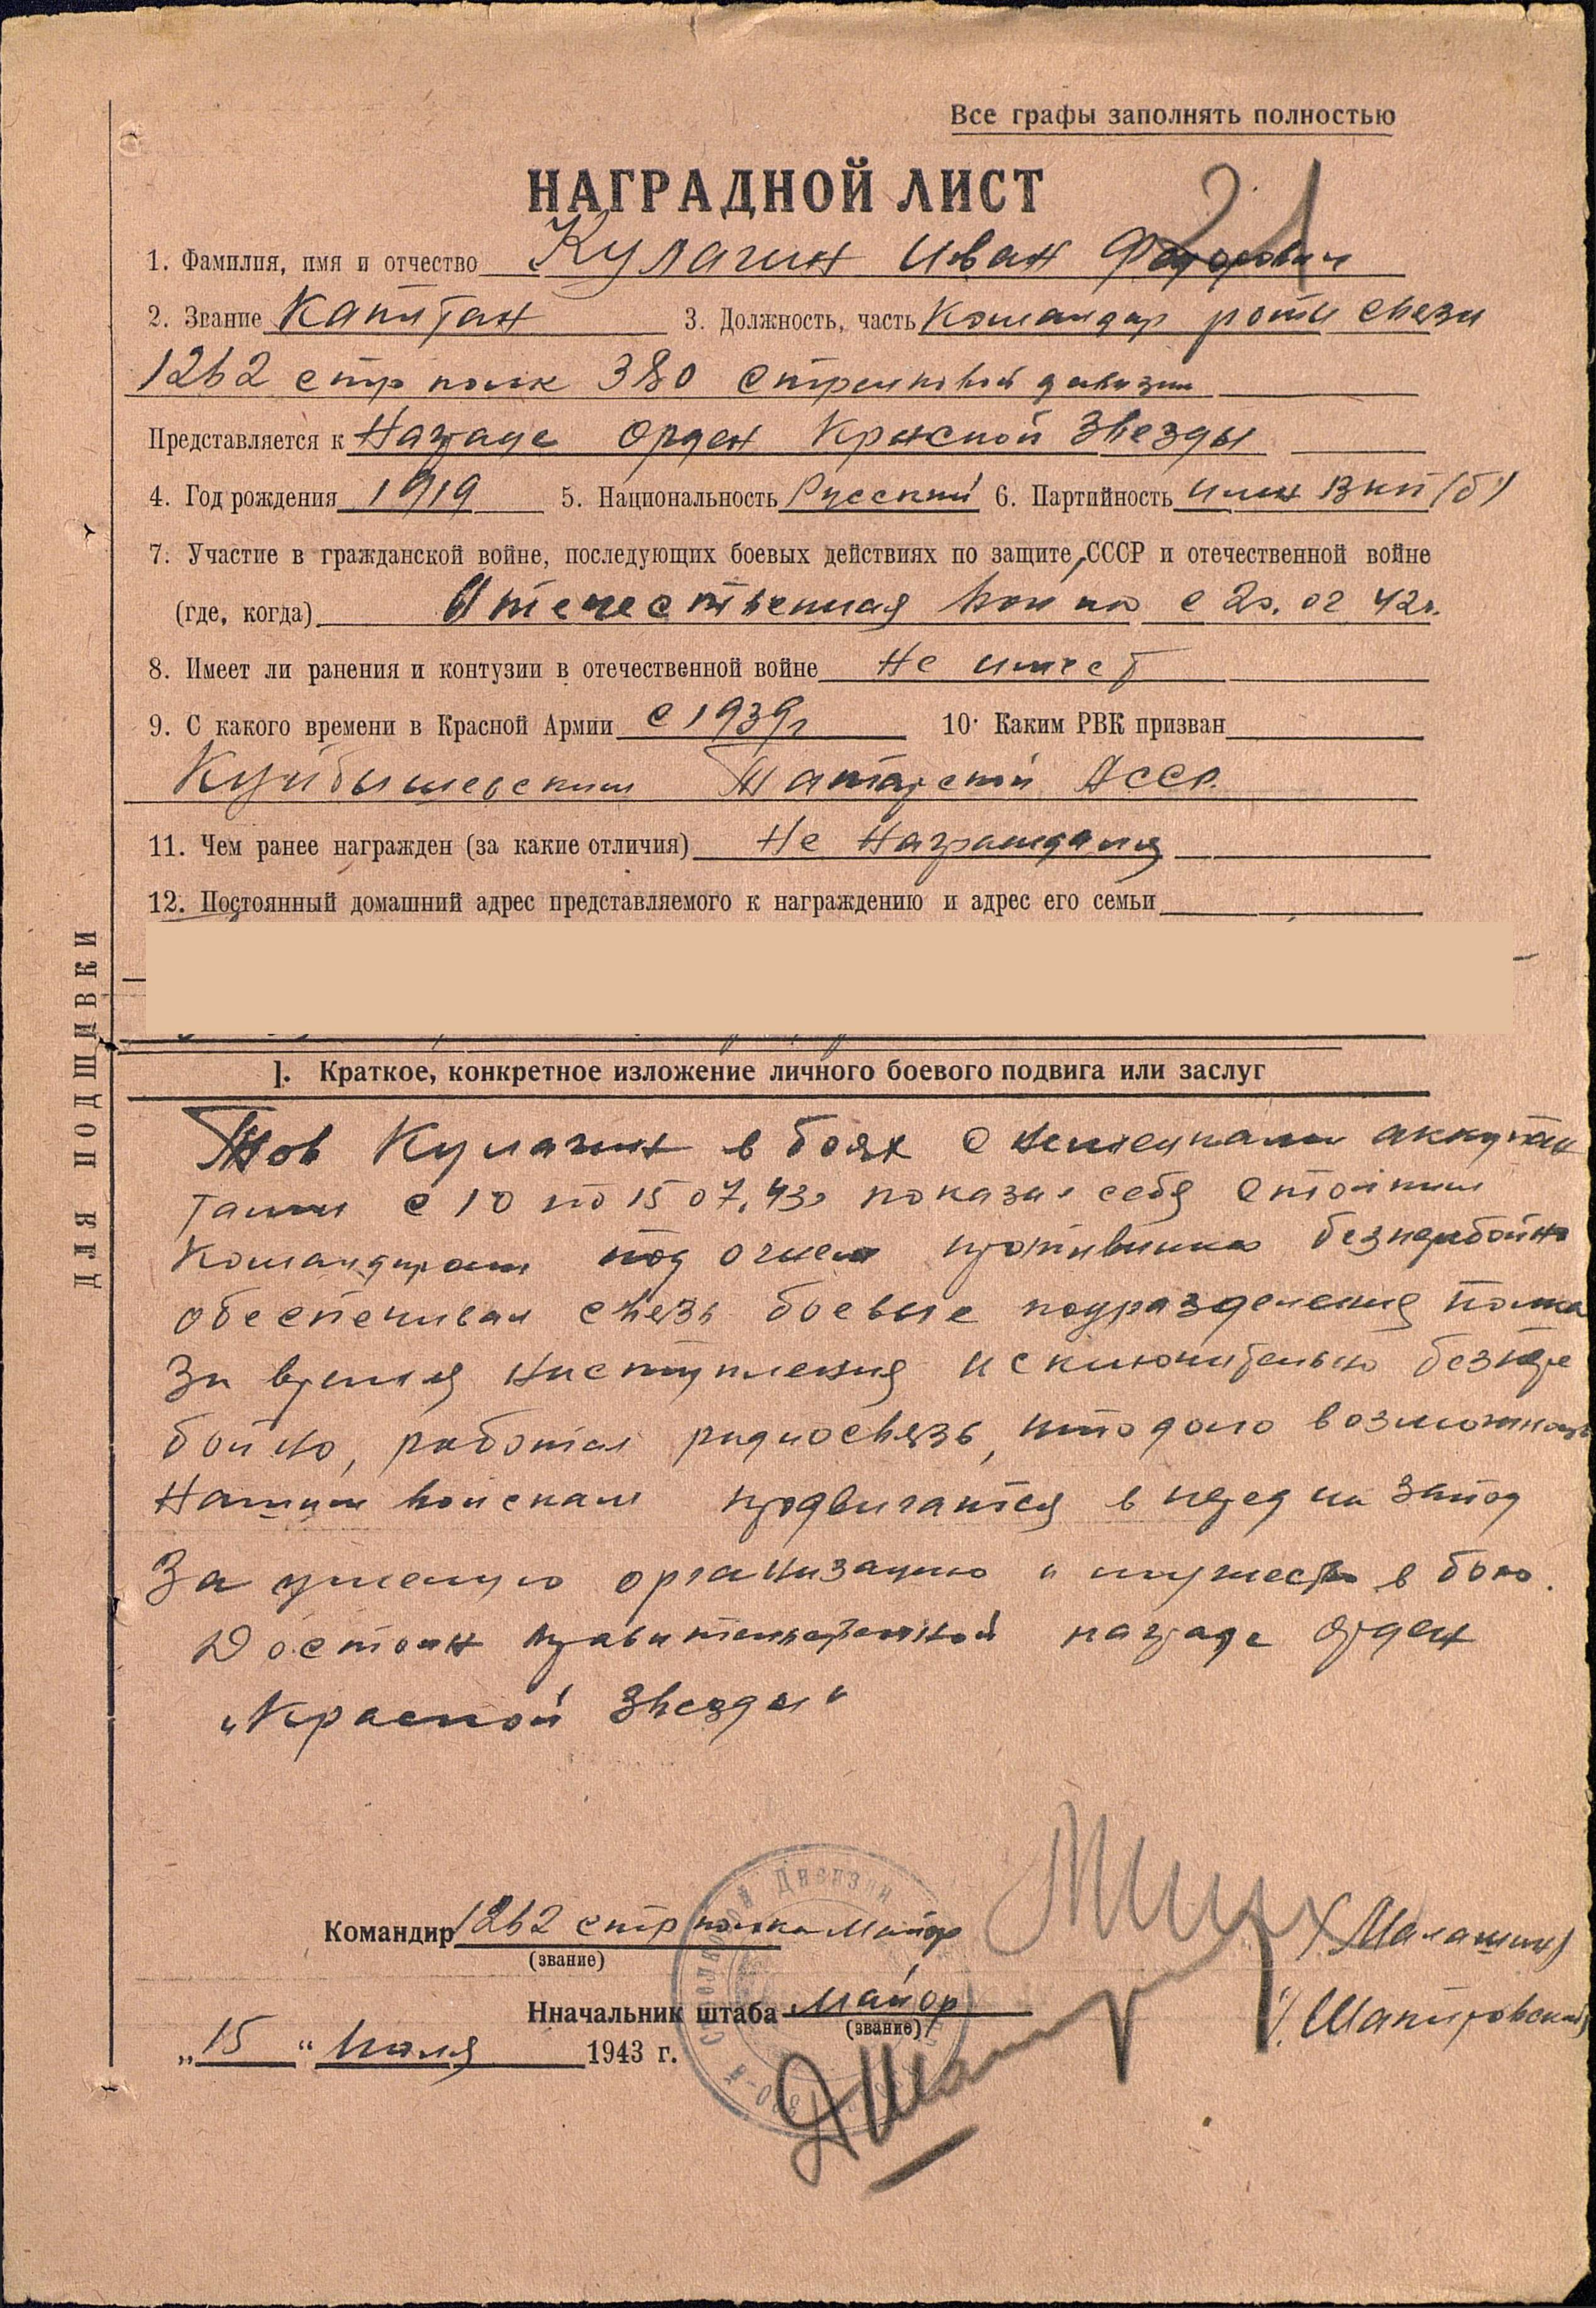 Все графы заполнять полностью
21
НАГРАДНОЙ ЛИСТ
1. Фамилия, имя и отчество Кулагин Иван Федорович
2. Звание Капитан 3. Должность, часть Командир роты связи
1262 стр полк 380 стрелковой дивизии
Представляется к Награде Орден Красной Звезды
4. Год рождения 1919 5. Национальность Русский 6. Партийность член ВКП(б)
7. Участие в гражданской войне, последующих боевых действиях по защите СССР и отечественной войне
(где, когда) Отечественная война с 20. 42г.
8. Имеет ли ранения и контузии в отечественной войне Не имеет
9. С какого времени в Красной Армии с 1939г 10. Каким РВК призван
Куйбышевским Татарской АССР.
11. Чем ранее награжден (за какие отличия) Не Награждался
12. Постоянный домашний адрес представляемого к награждению и адрес его семьи
ДЛЯ ПОДШИВКИ
1. Краткое, конкретное изложение личного боевого подвига или заслуг
Тов Кулагин в боях с немецкими оккупан
тами с 10 по 15 07.43г показал себя стойким
командиром под огнем противника безперебойно
обеспечивал связь боевые подразделения полка
За время наступления исключительно безпере
бойно, работал радиосвязь, что дало возможность
Нашим войскам продвигаться в перед на запад
За умелую организацию и мужество в бою.
Достоин правительственной награде орден
„Красной Звезды"
Командир 1262 стр полка Майор (Малашин)
(звание)
Нначальник штаба Майор
(звание)
„15" Июля 1943 г.